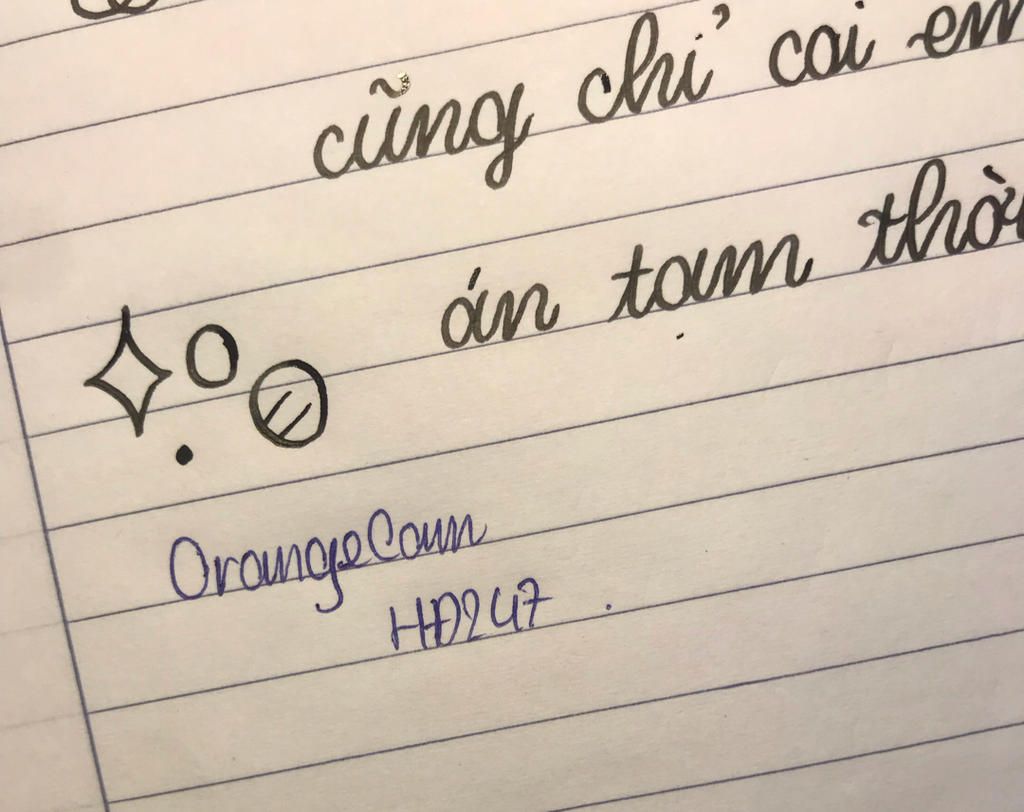 cũng chỉ coi em
án tam thời
OrangeCam
HĐ247